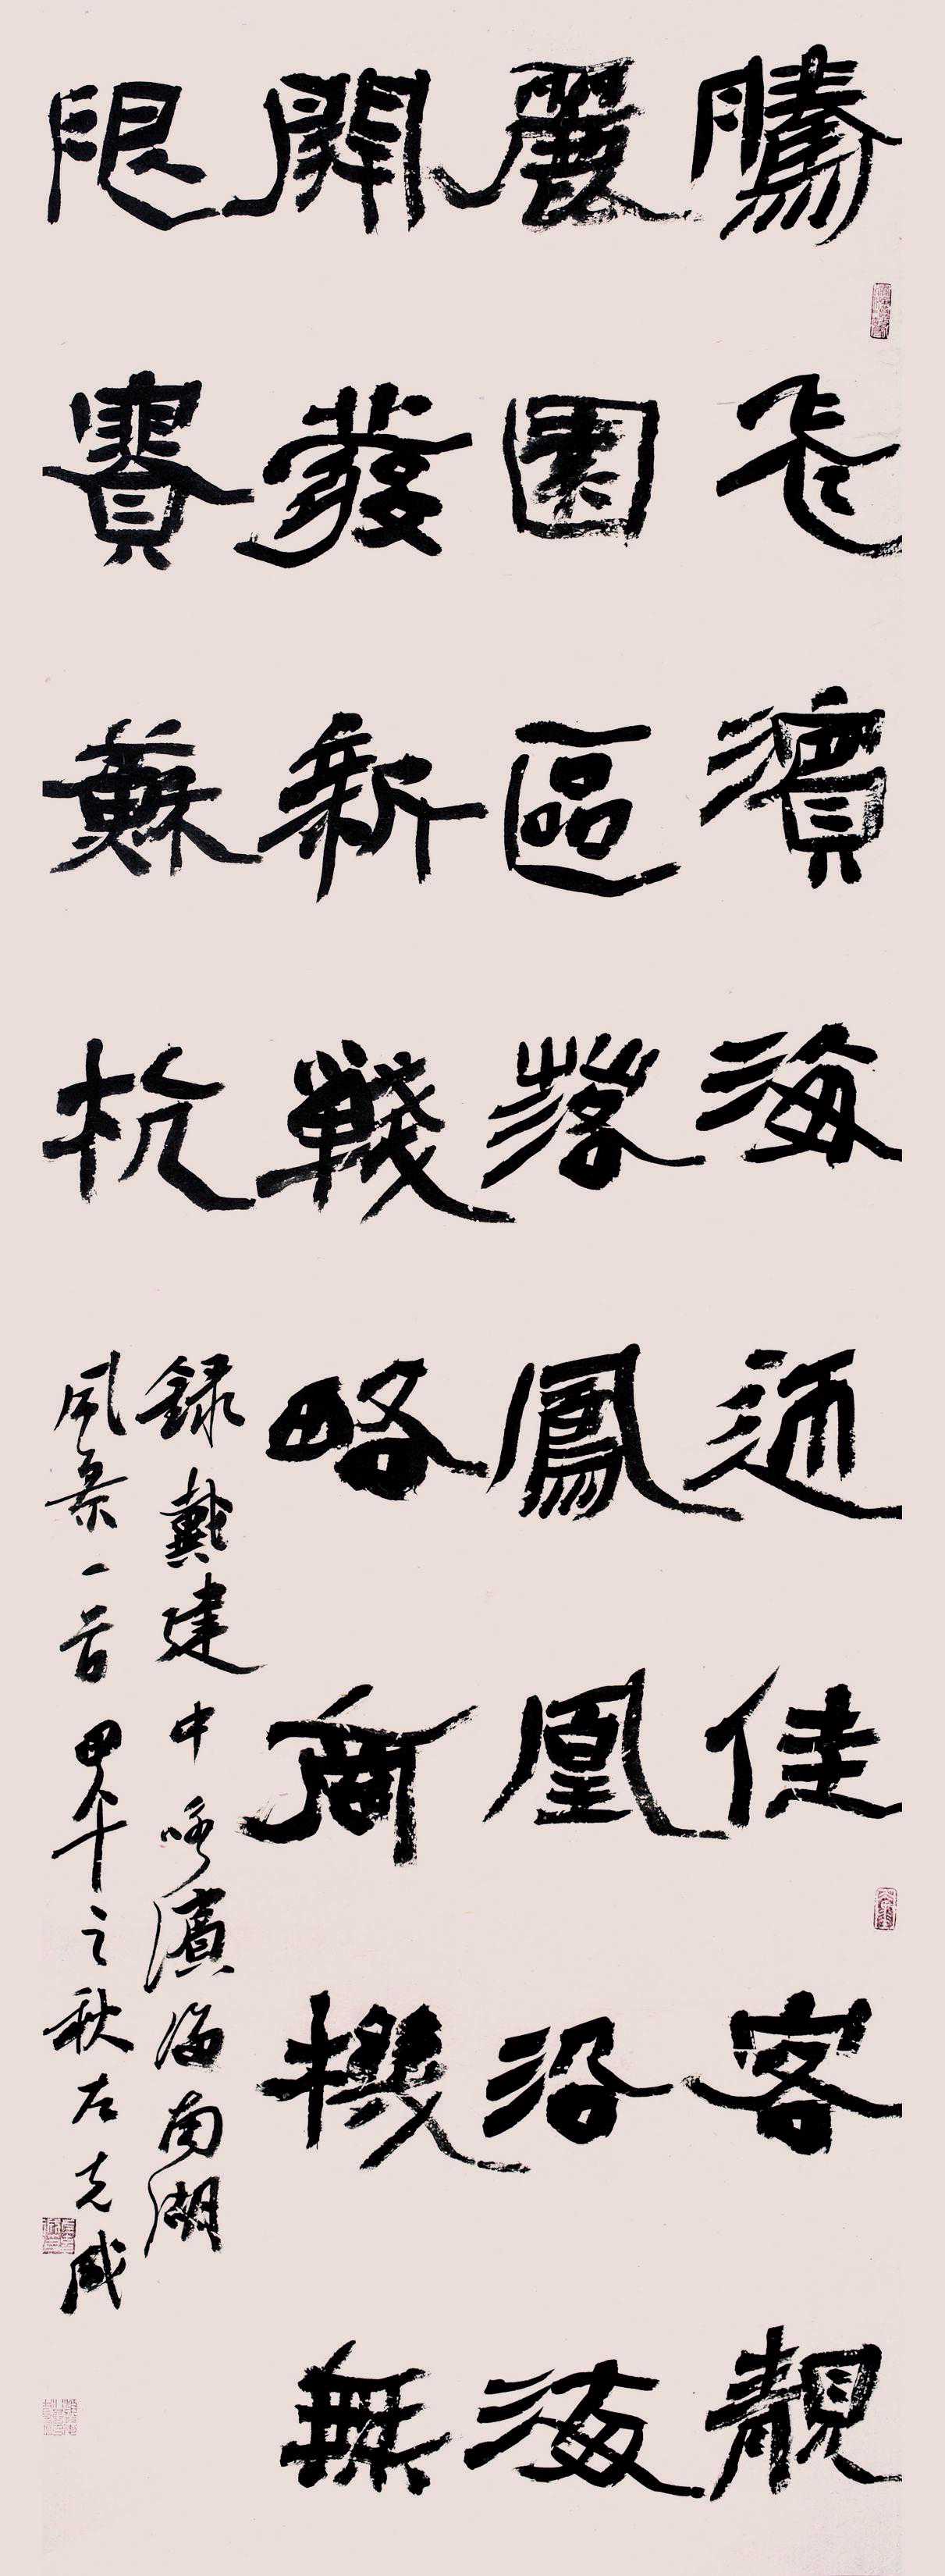 騰飛濱海迎佳客靚
麗園區落鳳凰沿海
開發新戰略商機無
限賽蘇杭
録戴建中咏濱海南湖
風景一首甲午之秋左克成